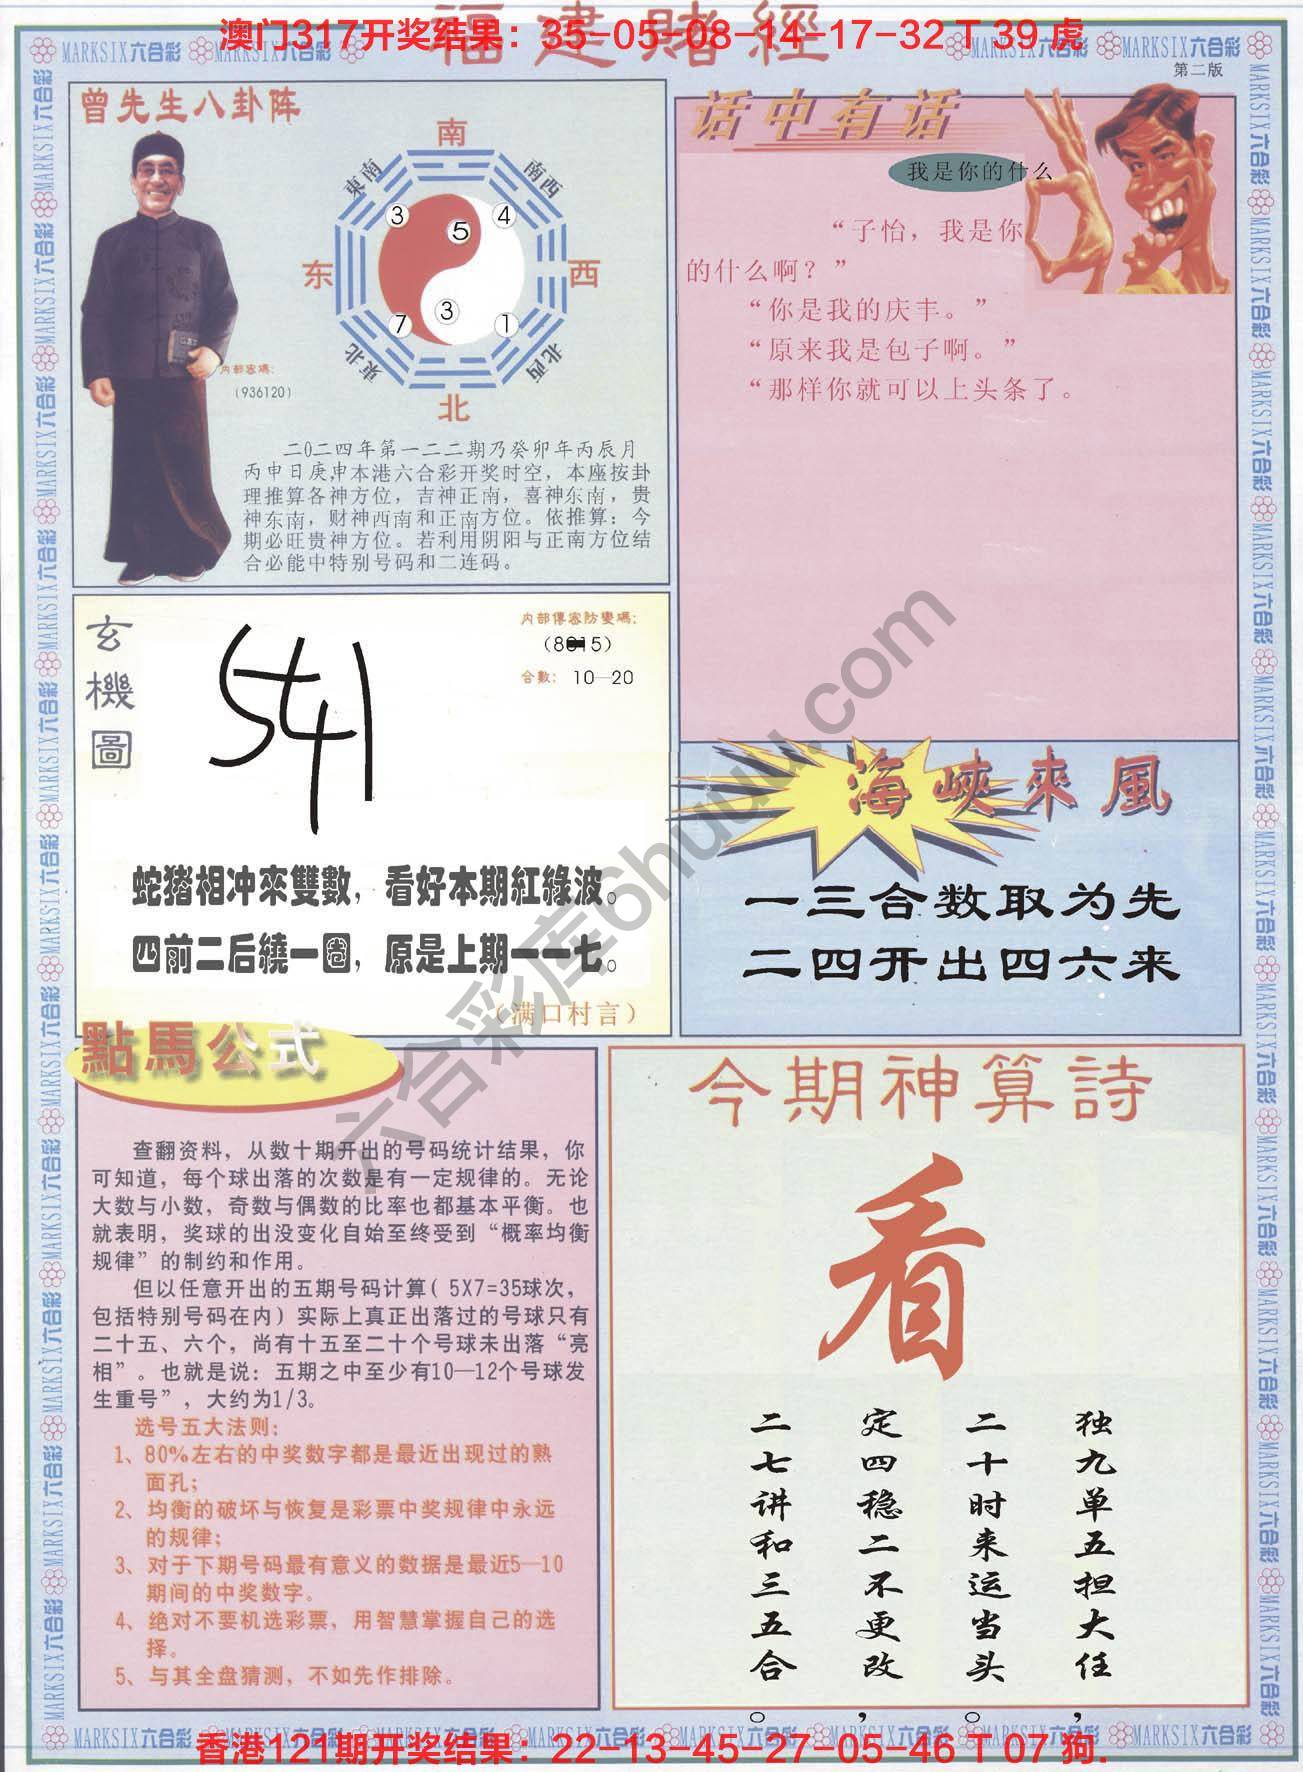 福建賭經
澳门317开奖结果：35-05-08-14-17-32 T 39 虎
MARKSIX六合彩
第二版
曾先生八卦阵
南
東南
南西
3
4
5
东
西
3
7
1
東北
北西
北
内部密碼：
(936120)
二0二四年第一二二期乃癸卯年丙辰月
丙申日庚申本港六合彩开奖时空，本座按卦
理推算各神方位，吉神正南，喜神东南，贵
神东南，财神西南和正南方位。依推算：今
期必旺贵神方位。若利用阴阳与正南方位结
合必能中特别号码和二连码。
话中有话
我是你的什么
“子怡，我是你
的什么啊？”
“你是我的庆丰。”
“原来我是包子啊。”
“那样你就可以上头条了。
玄機圖
541
内部傳密防變碼：
合數：10—20
蛇猪相冲來雙數，看好本期紅綠波。
四前二后繞一圈，原是上期一一七。
（满口村言）
海峽來風
一三合数取为先
二四开出四六来
點馬公式
查翻资料，从数十期开出的号码统计结果，你
可知道，每个球出落的次数是有一定规律的。无论
大数与小数，奇数与偶数的比率也都基本平衡。也
就表明，奖球的出没变化自始至终受到“概率均衡
规律”的制约和作用。
但以任意开出的五期号码计算( 5X7=35球次，
包括特别号码在内）实际上真正出落过的号球只有
二十五、六个，尚有十五至二十个号球未出落“亮
相”。也就是说：五期之中至少有10—12个号球发
生重号”，大约为1/3。
选号五大法则：
1、80%左右的中奖数字都是最近出现过的熟
面孔；
2、均衡的破坏与恢复是彩票中奖规律中永远
的规律；
3、对于下期号码最有意义的数据是最近5—10
期间的中奖数字。
4、绝对不要机选彩票，用智慧掌握自己的选
择。
5、与其全盘猜测，不如先作排除。
今期神算詩
看
独九单五担大任，
二十时来运当头。
定四稳二不更改，
二七讲和三五合。
六合彩库6huuu.com
香港121期开奖结果：22-13-45-27-05-46 T 07 狗.